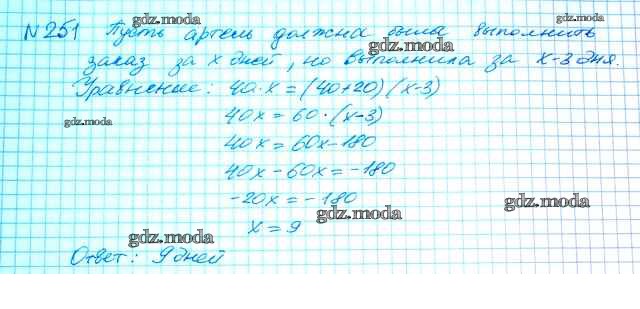 gdz.moda gdz.moda
№251 Пусть артель должна была выполнить
gdz.moda
заказ за x дней, но выполнила за x-3 дня.
Уравнение: 40·x=(40+20)(x-3)
gdz.moda
40x=60·(x-3)
40x=60x-180
40x-60x=-180
-20x=-180
gdz.moda gdz.moda
x=9
gdz.moda
Ответ: 9 дней